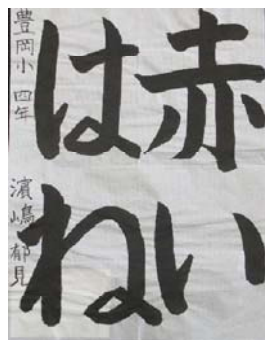 赤い
はね
豊岡小 四年 濱嶋 郁見